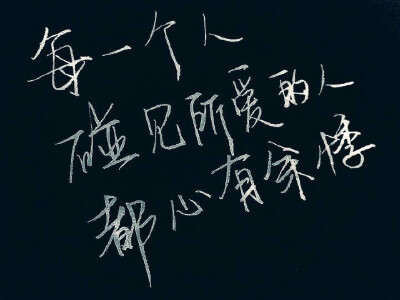 每一个人
碰见所爱的人
都心有余悸